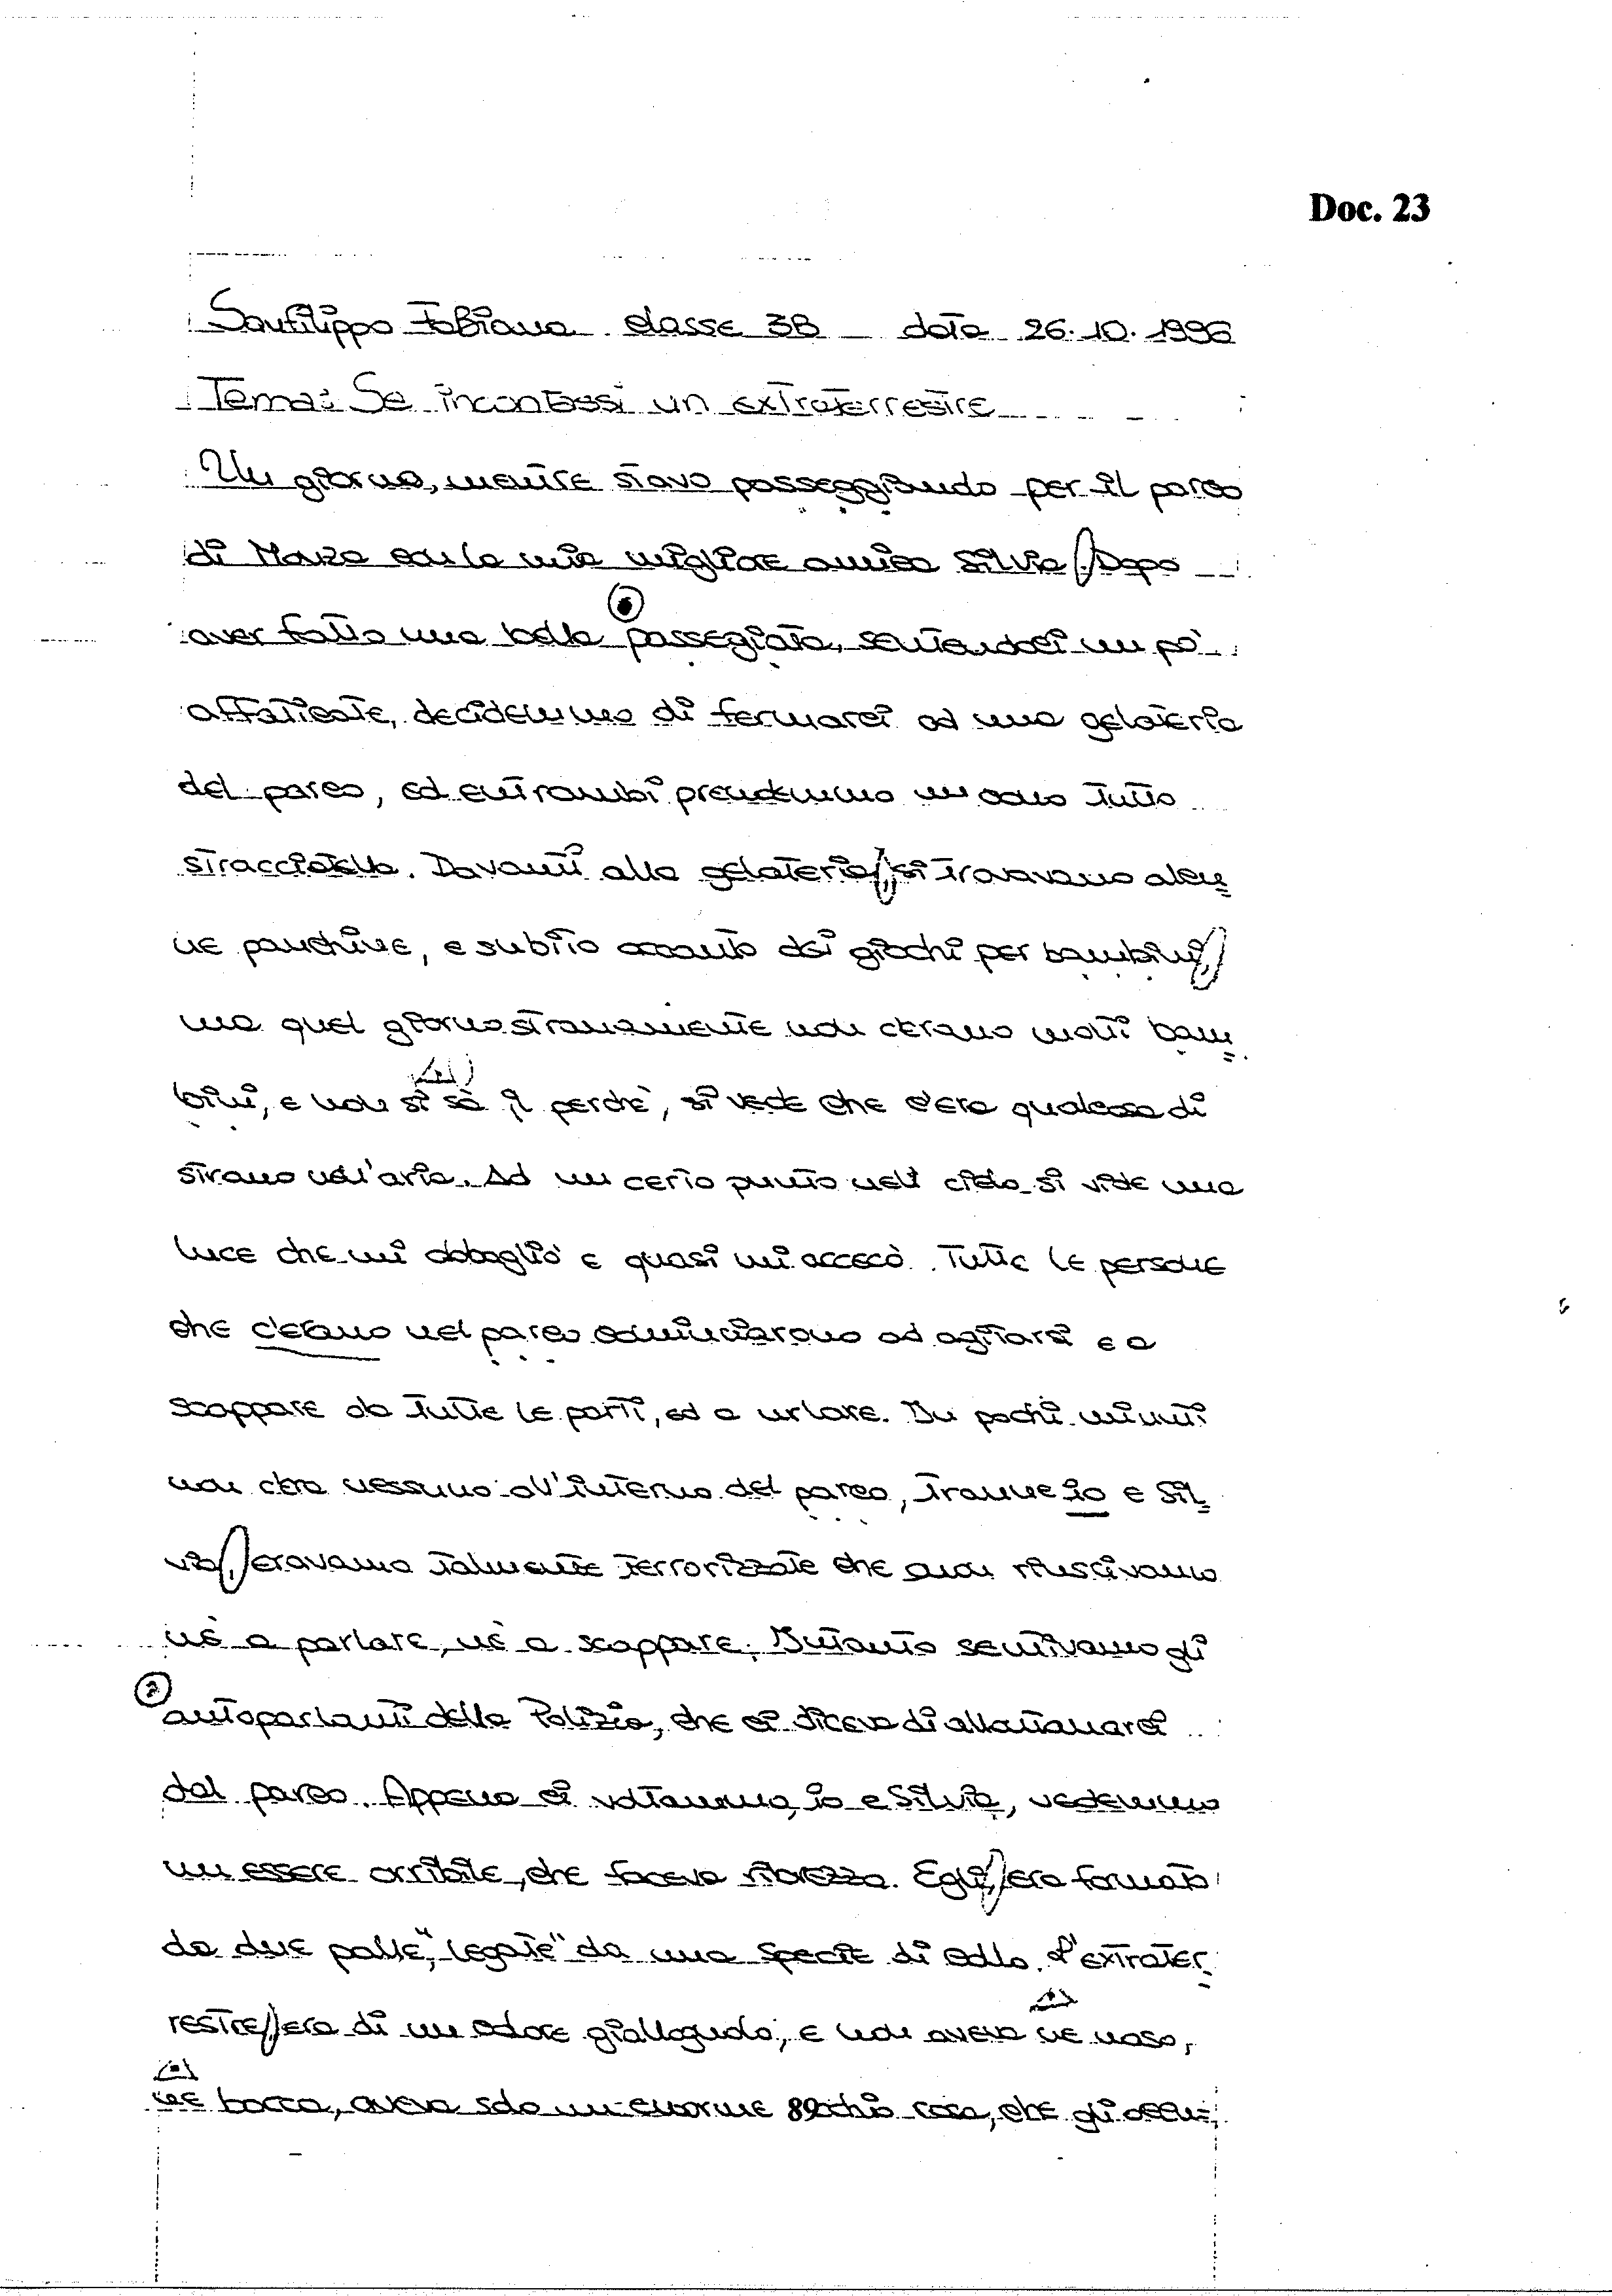 Doc. 23
Sanfilippo Fabiana classe 3B – data 26.10.1996
Tema: Se incontrassi un extraterrestre
Un giorno, mentre stavo passeggiando per il parco
di Monza con la mia migliore amica Silvia. Dopo
aver fatto una bella passegiata, sentendoci un pò
affaticate, decidemmo di fermarci ad una gelateria
del parco, ed entrambi prendemmo un cono tutto
stracciatella. Davanti alla gelateria, si trovavano alcu
ne panchine, e subito accanto dei giochi per bambini,
ma quel giorno stranamente non c'erano molti bam
bini, e non si sà il perchè, si vede che c'era qualcosa di
strano nell'aria. Ad un certo punto nell cielo si vide una
luce che mi abbagliò e quasi mi accecò. Tutte le persone
che c'erano nel parco cominciarono ad agitarsi e a
scappare da tutte le parti, ed a urlare. In pochi minuti
non c'era nessuno all'interno del parco, tranne io e Sil
via, eravamo talmente terrorizzate che non riuscivamo
nè a parlare, nè a scappare. Intanto sentivamo gli
autoparlanti della Polizia, che ci diceva di allontanarci
dal parco. Appena ci voltammo, io e Silvia, vedemmo
un essere orribile, che faceva ribrezzo. Egli, era formato
da due palle, "legate" da una specie di collo. L'extrater
restre, era di un colore giallognolo, e non aveva ne naso,
ne bocca, aveva solo un enorme occhio rosa, che gli